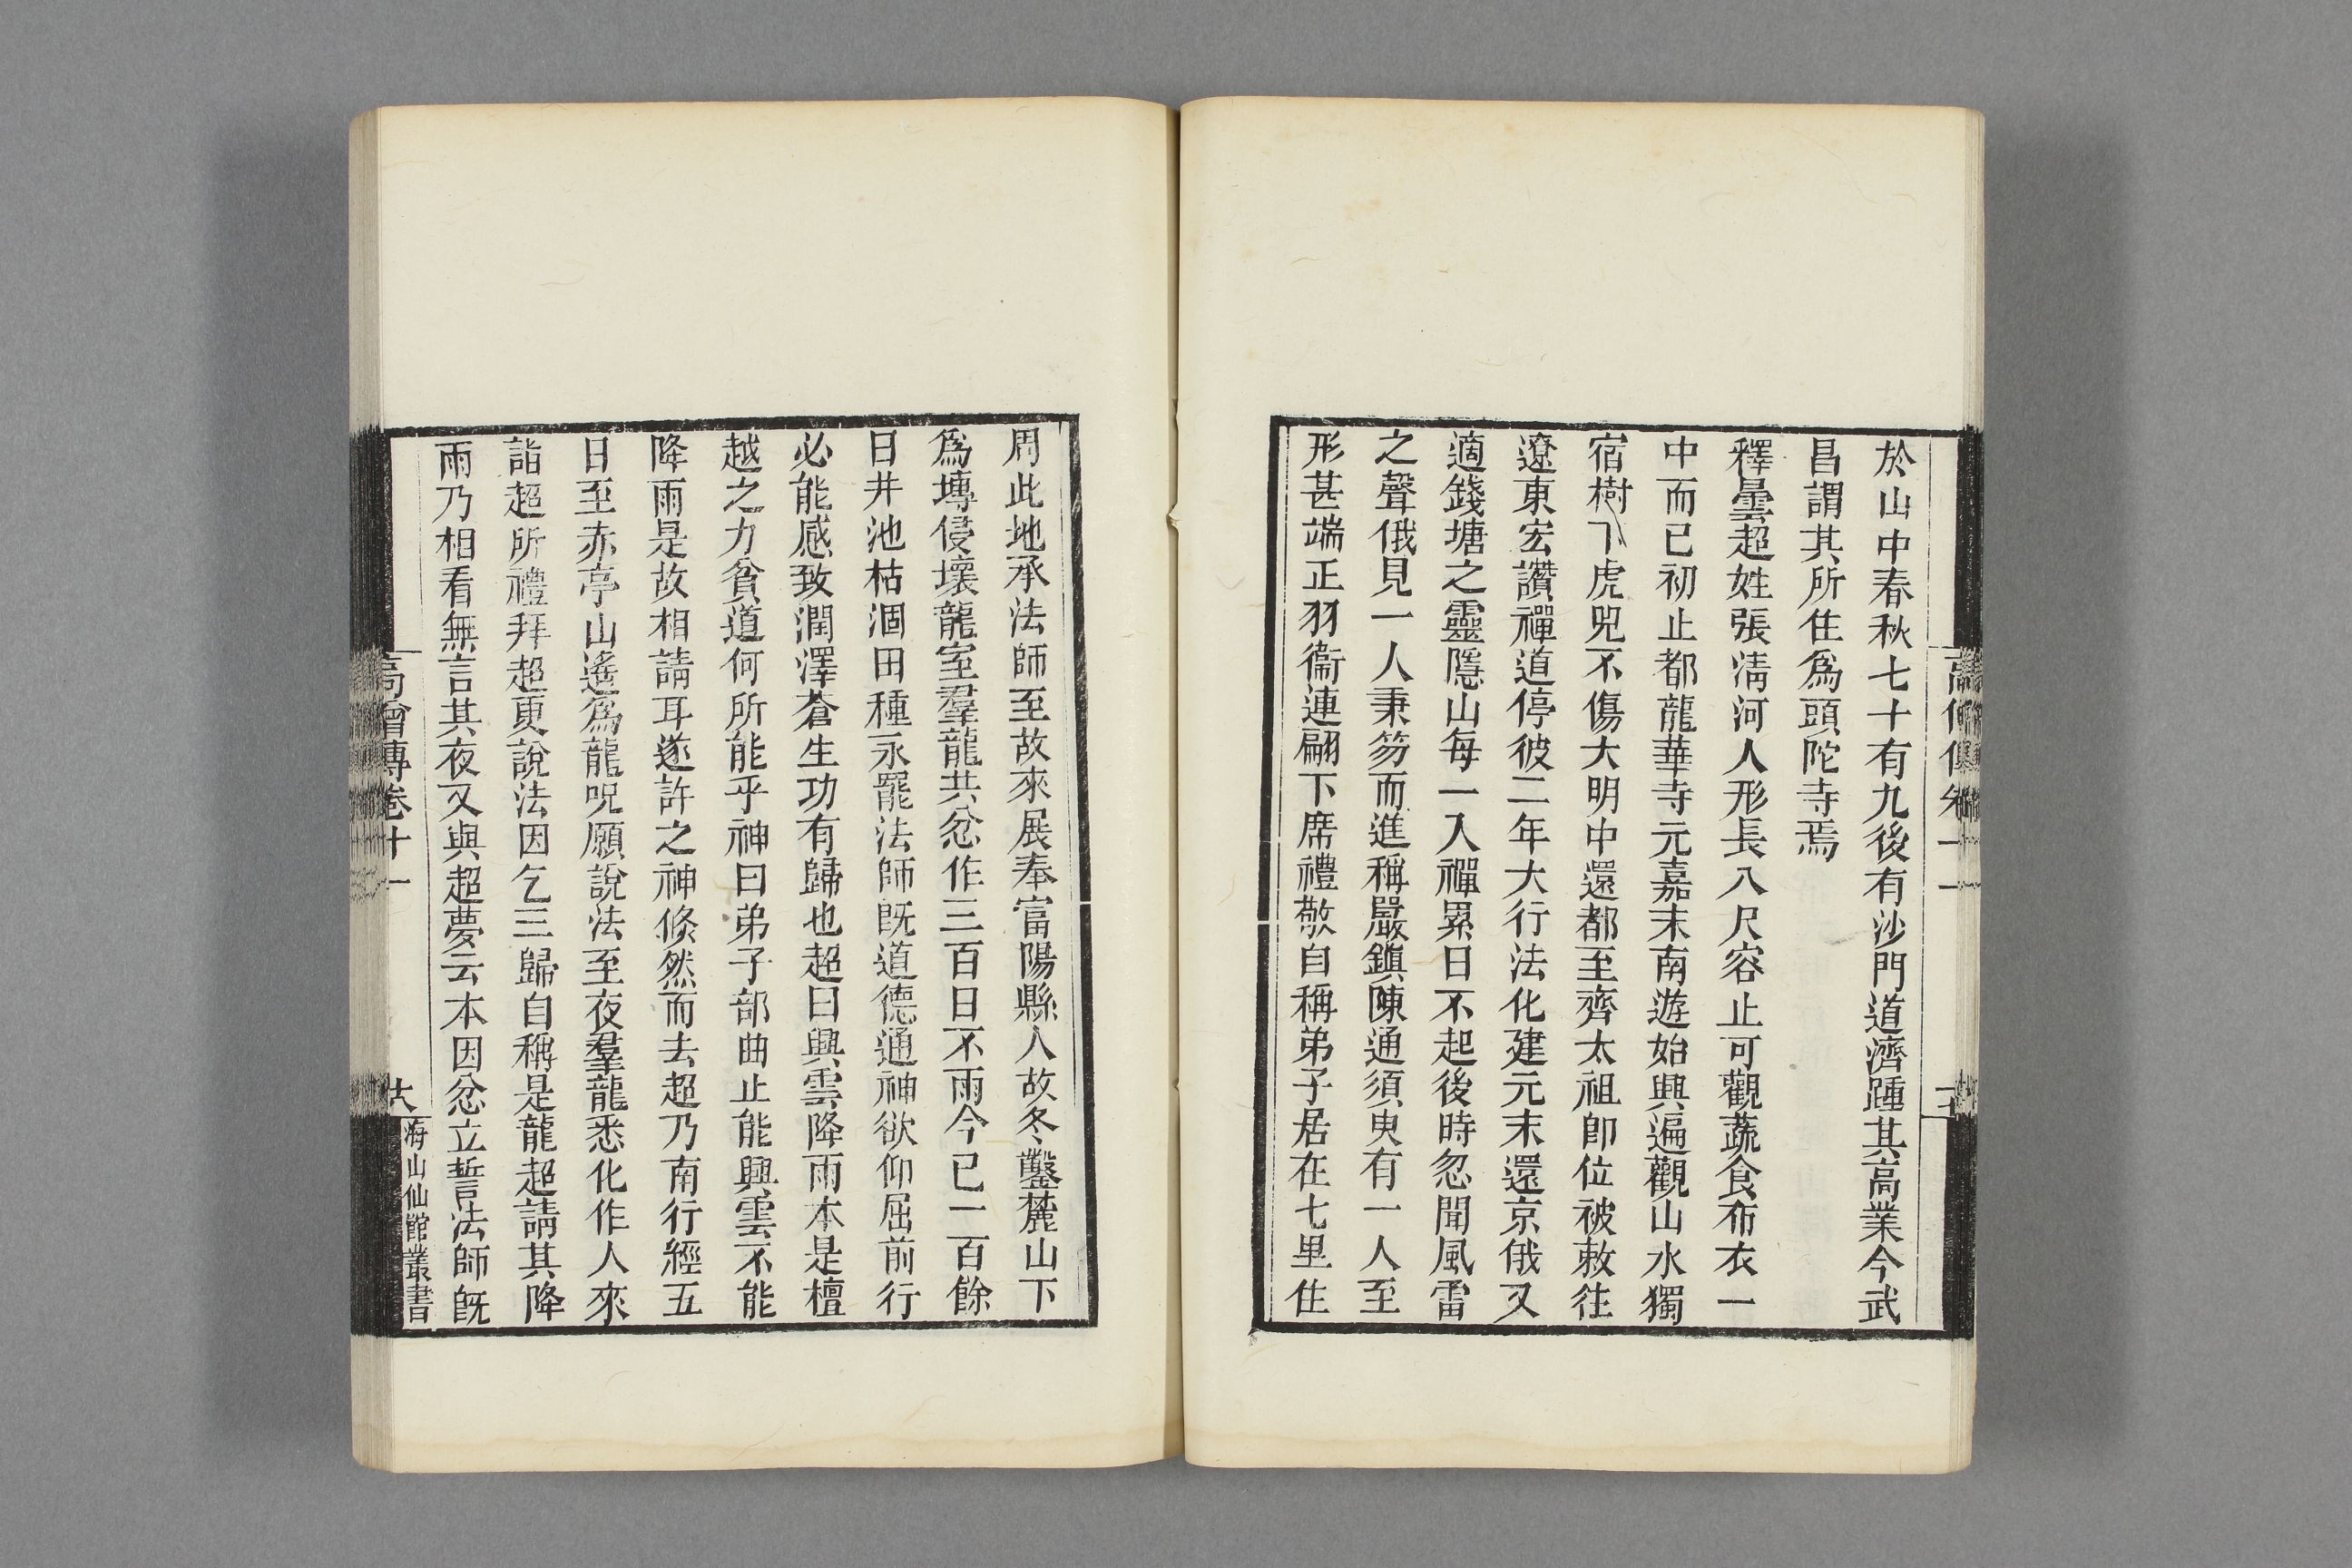 於山中春秋七十有九後有沙門道濟踵其高業今武
昌謂其所住爲頭陀寺焉
釋曇超姓張淸河人形長八尺容止可觀蔬食布衣一
中而已初止都龍華寺元嘉末南遊始興遍觀山水獨
宿樹下虎兕不傷大明中還都至齊太祖卽位被敕往
遼東宏讚禪道停彼二年大行法化建元末還京俄又
適錢塘之靈隱山每一入禪累日不起後時忽聞風雷
之聲俄見一人秉笏而進稱嚴鎮陳通須臾有一人至
形甚端正羽衞連翩下席禮敬自稱弟子居在七里住
周此地承法師至故來展奉富陽縣人故冬鑿麓山下
爲塼侵壞龍室羣龍共忿作三百日不雨今已一百餘
日井池枯涸田種永罷法師旣道德通神欲仰屈前行
必能感致潤澤蒼生功有歸也超曰興雲降雨本是檀
越之力貧道何所能乎神曰弟子部曲止能興雲不能
降雨是故相請耳遂許之神倐然而去超乃南行經五
日至赤亭山遙爲龍呪願說法至夜羣龍悉化作人來
詣超所禮拜超更說法因乞三歸自稱是龍超請其降
雨乃相看無言其夜又與超夢云本因忿立誓法師旣
高僧傳卷十一
十八
海山仙館叢書